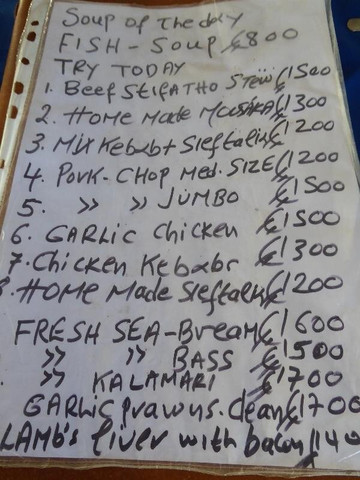 Soup of The day
FISH-Soup €800
TRY TODAY
1. Beef StifATHO Stew €1500
2. HOME Made Mousaka €1300
3. Mix Kebabt Sieftalis €1200
4. Pork-CHOP Med. SIZE €1200
5. " " JUMBO €1500
6. GARLic Chicken €1500
7. Chicken Kebabr €1300
8. HOME Made Sieftalis €1200
FRESH SEA-Bream €1600
" " BASS €1500
" KALAMARI €1700
GARLic prawns. clean €1700
LAMb's liver with bacon 1140